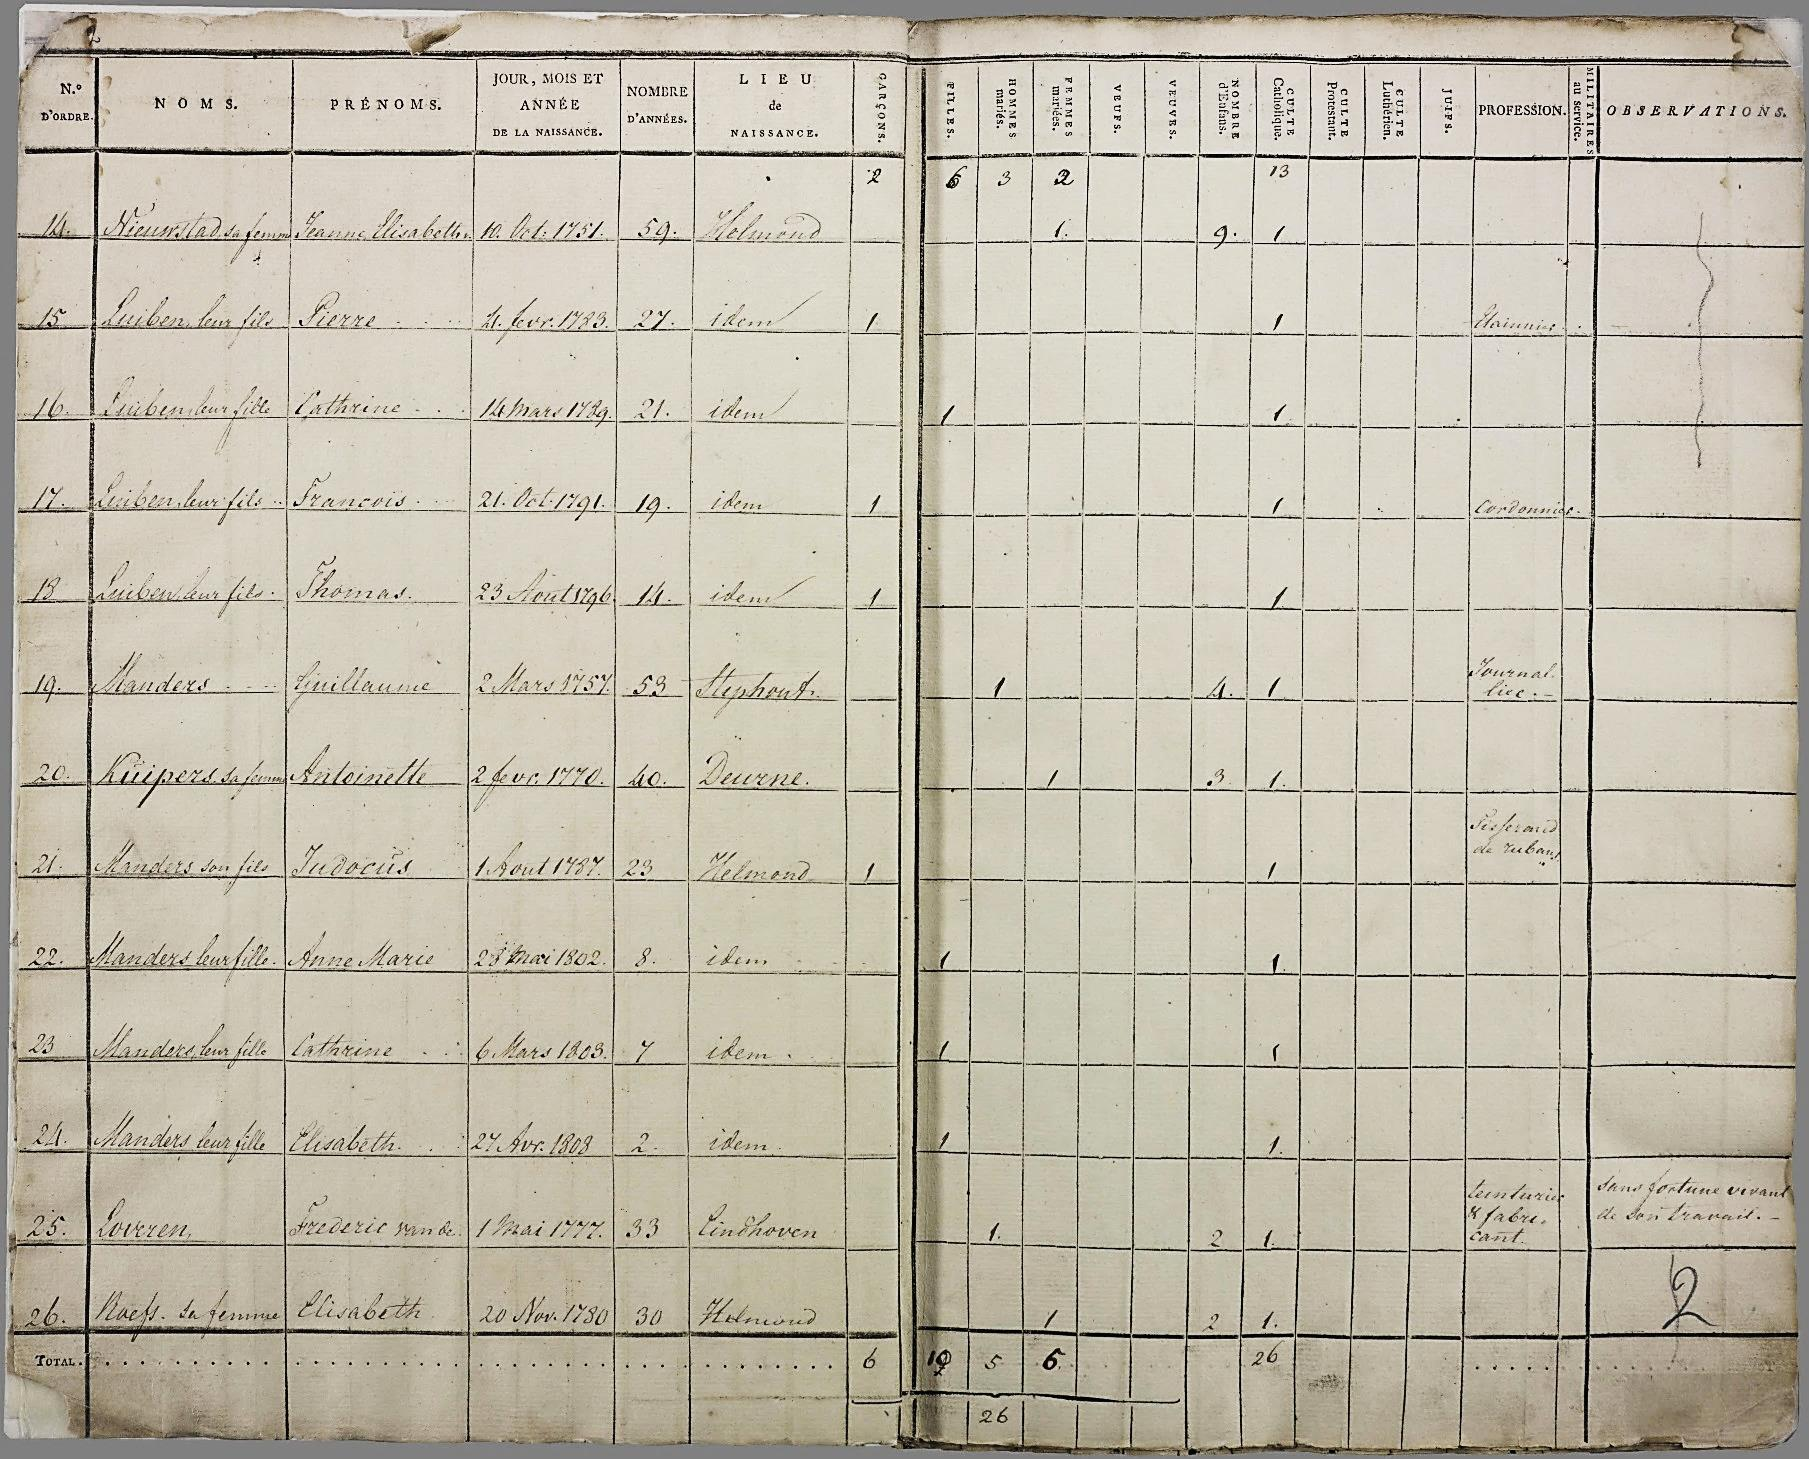 2
N.º D'ORDRE. NOMS. PRÉNOMS. JOUR, MOIS ET ANNÉE DE LA NAISSANCE. NOMBRE D'ANNÉES. LIEU de NAISSANCE. GARÇONS. FILLES. HOMMES mariés. FEMMES mariées. VEUFS. VEUVES. NOMBRE d'Enfans. CULTE Catholique. CULTE Protestant. CULTE Luthérien. JUIFS. PROFESSION. MILITAIRES au service. OBSERVATIONS.
2 6 3 2 13
14. Nieuwstad, sa femme Jeanne Elisabeth 10. Oct. 1751. 59. Helmond 1. 9. 1
15 Luiben, leur fils Pierre 4. fevr. 1783. 27. idem 1 1
16. Luiben, leur fille Cathrine 14 Mars 1789. 21. idem 1 1
17. Luiben, leur fils Francois 21. Oct. 1791. 19. idem 1 1 Cordonnier.
18 Luiben, leur fils. Thomas. 23 Aout 1796. 14. idem 1 1
19. Manders Guillaume 2 Mars 1757. 53 Stiphout. 1 4. 1 Journal-
lier.
20. Kuipers, sa femme Antoinette 2 fevr. 1770. 40. Deurne. 1 3. 1.
21. Manders son fils Judocus 1 Aout 1787. 23 Helmond 1 1 Tisserand
de rubans
22. Manders leur fille. Anne Marie 28 Mai 1802. 8. idem 1 1.
23 Manders, leur fille Cathrine 6 Mars 1803. 7 idem. 1 1
24. Manders, leur fille Elisabeth. 27 Avr. 1808 2. idem. 1 1.
25. Loveren, Frederic van de. 1 Mai 1777. 33 Eindhoven 1. 2 1. teinturier
& fabri-
cant.
sans fortune vivant
de son travail. –
26. Roefs. sa femme Elisabeth 20 Nov. 1780 30 Helmond 1 2 1.
2
TOTAL. 6 10 5 5. 26
26